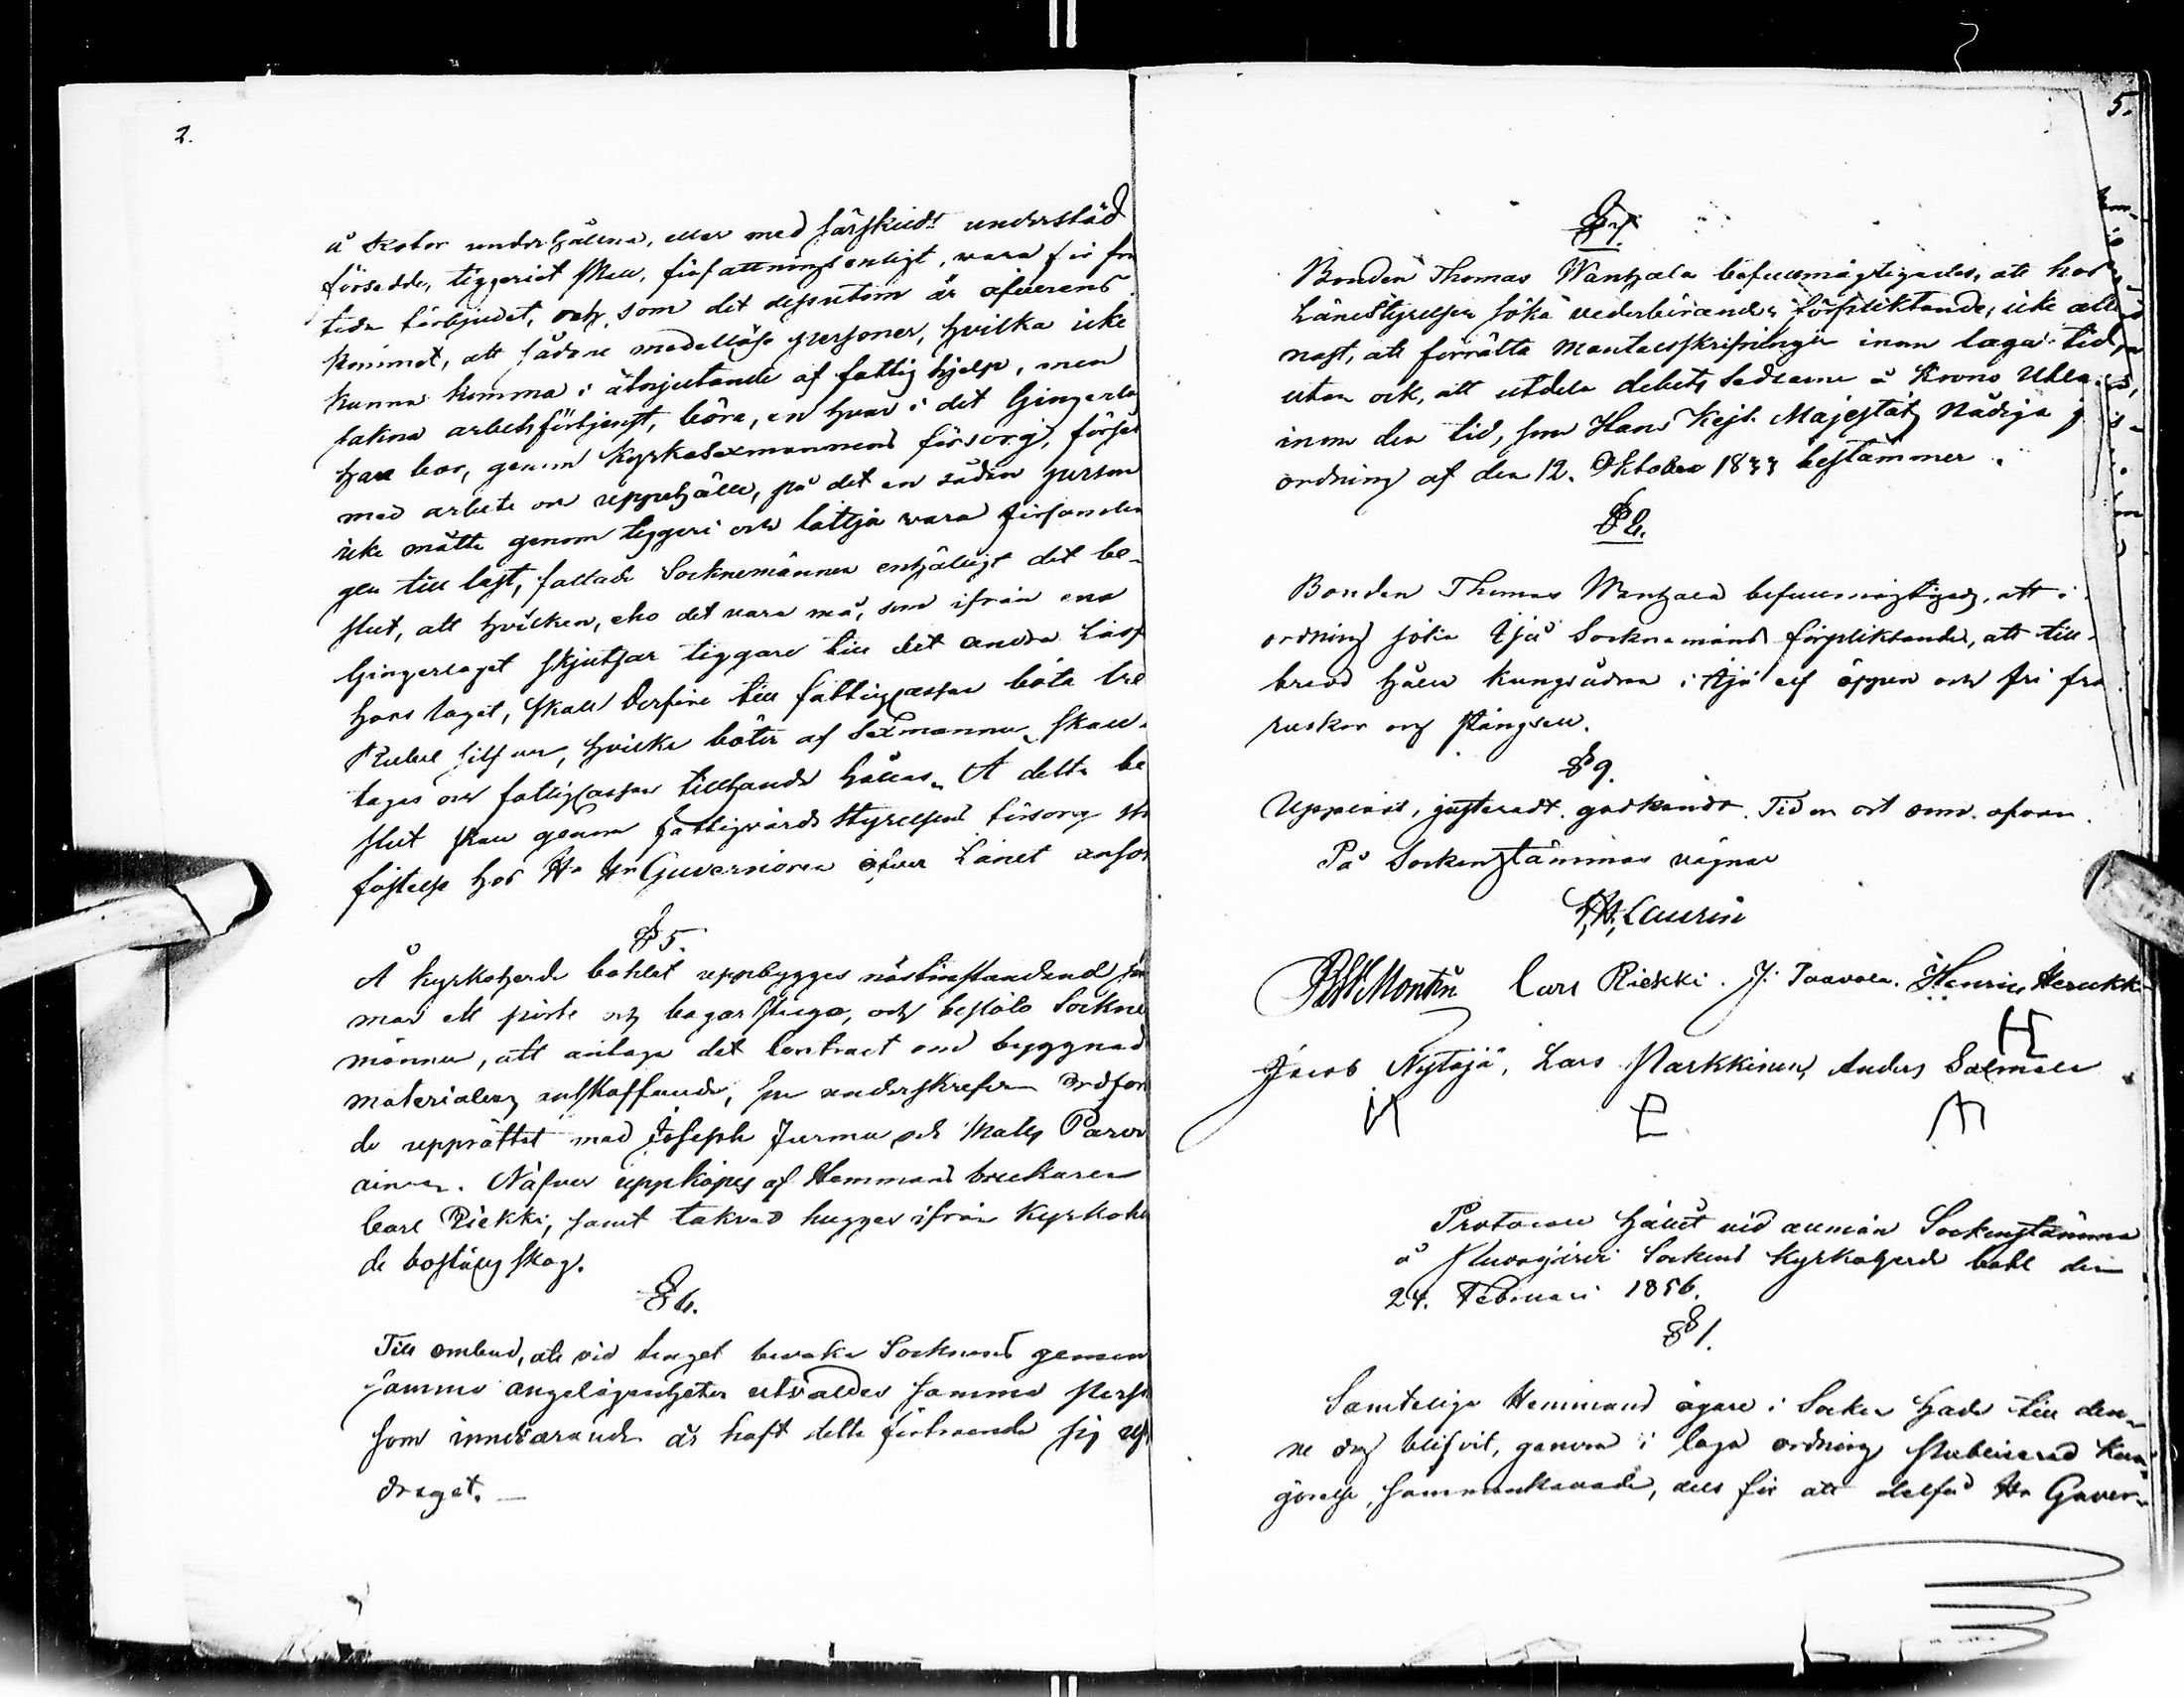 2.
å Rotor underhållna, eller med särskildt understöd
försedde, tiggeriet skall, författningsenligt, vara för fram
tiden förbjudet, och som det dessutom är öfverens
kommet, att sådane medellöse personer, hvilka icke
kunna komma i åtnjutande af fattig hjelp, men
sakna arbetsförtjenst, böra, en hvar i det Gingerla
han bor, genom Kyrkosexmannens försorg, förses
med arbete och uppehälle, på det en sådan person
icke måtte genom tiggeri och lättja vara församlin
gen till last, fattade Socknemännen enhälligt det be-
slut, att hvilken, eho det vara må, som ifrån ena
Gingerlaget skjutsar tiggare till det andra
laget, skall derföre till fattigcassan böta tre
Rubel silfver, hvilka böter af Sexmannen skall
tagas och fattigcassan tillhanda hållas. Å detta be
slut skall genom fattigvårds styrelsens försorg sta
fästelse hos Hr Guvernören öfver Länet
§ 5.
Å Kyrkoherde bohlet uppbygges nästinstundande som
mar ett pörte och bagar stuga, och beslöto Sockne
männen, att antaga det Contract om byggnads
materialiers anskaffande, som underskrefven Ordföran
de upprättat med Joseph Jurmu och Matts
Näfver uppköpes af Hemmans brukaren
Carl Riekki, samt takved hugges ifrån Kyrkoher
de boställets skog.
§ 6.
Till ombud, att vid tinget bevaka Socknens gemen
samma angelägenheter utvaldes samma person
som innevarande år haft detta förtroende sig upp
draget. —
5.
§ 7.
Bonden Thomas Wanhala befullmägtigades, att hos
Länestyrelsen söka vederbörandes förpliktande, icke alle
nast, att förrätta Mantalsskrifningen inom laga tid,
utan ock, att utdela debets sedlarne å Krono Utla
inom den tid, som Hans Kejs. Majestäts Nådiga
ordning af den 12. Oktober 1833 bestämmer.
§ 8.
Bonden Thomas Wanhala befullmägtigades, att i
ordning söka Ijå Socknemäns förpliktande, att till
bredd hålla kungsådran i Ijå elf öppen och fri från
ruskor och stängsel.
§ 9.
Uppläst, justeradt, godkändt. Tid och ort som ofvan.
På Sockenstämmas vägnar
Laurin
Montin Carl Riekki. J. Paavola. Henric
H
Jacob Lars Markkinen, Anders
Protocoll hållet vid allmän Sockenstämma
å Sockens Kyrkoherde bohl den
24. Februari 1856.
§ 1.
Samtelige Hemmans ägare i Socken hade till den-
ne dag blifvit, genom i laga ordning publicerad kun-
görelse, sammankallade, dels för att Hr Guver-